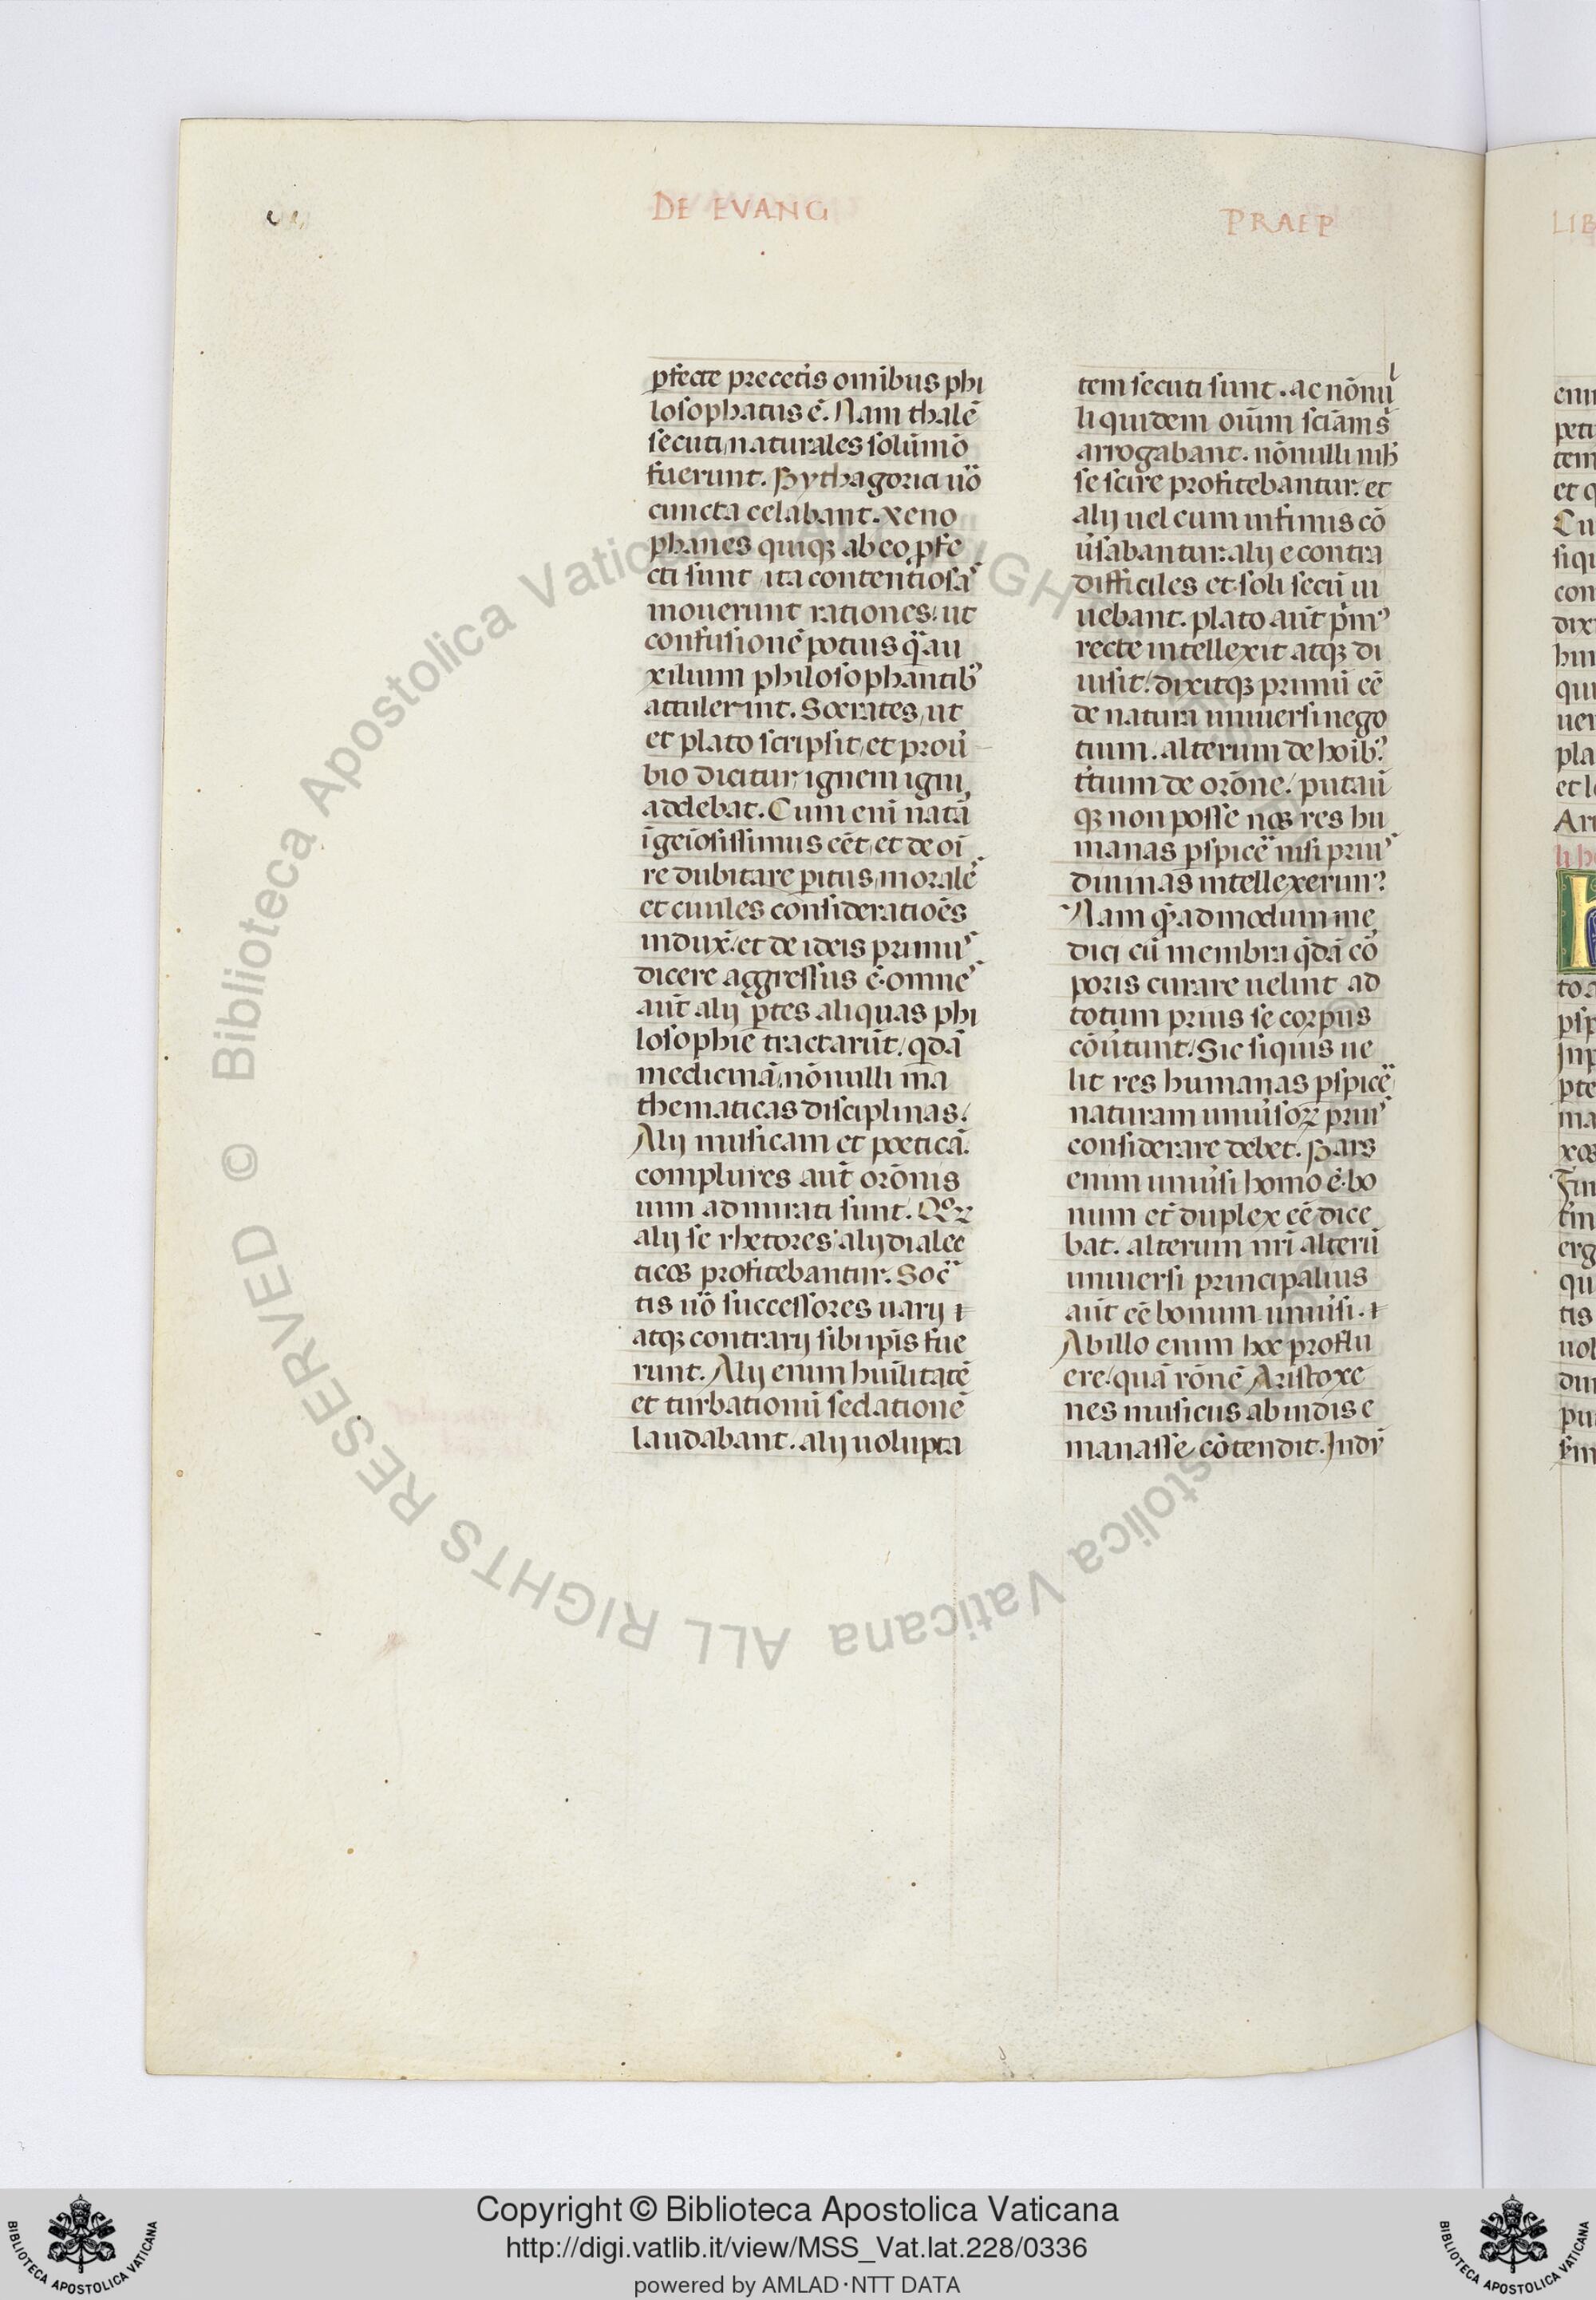 DE EVANG
PRAEP
pfecte precetis omībus phi
losophatus ē. Nam thalē
secuti naturales solūmō
fuerunt. Pythagorici uō
cuncta celabant. xeno
phanes quiqꝫ ab eo pfe
cti sunt ita contentiosaˢ
mouerunt rationes: ut
confusionē potius q̄ au
xilium philosophantibꝰ
attulerint. Socrates, ut
et plato scripsit, et prou̍
bio dicitur, ignem igni
addebat. Cum eni natā
īgēiosissimus eēt, et de oī
re dubitare pitus, moraleˢ
et ciuiles considerationēs
indux̄: et de ideis primuˢ
dicere aggressus ē. omneˢ
aūt alij ptes aliquas phi
losophie tractarūt: qdā
medicinā, nōnulli ma
thematicas disciplinas:
Alij musicam et poeticā.
complures aūt orōnis
uim admirati sunt. Qoꝝ
alij se rhetores alij dialec
ticos profitebantur. Soc̄
tis uō successores uarij
atqꝫ contrarij sibi ip̄is fue
runt. Alij enim huīlitatē
et turbationū sedationē
laudabant. alij uolupta
tem secuti sunt. ac nōnul
li quidem oīum sciām s̍
arrogabant. nōnulli nihꝰ
se scire profitebantur. et
alij uel cum infimis cō
u̍sabantur: alij e contra
difficiles et soli secū ui
uebant. plato aūt p̍mꝰ
recte intellexit atqꝫ di
uisit: dixitqꝫ primū eē
de natura uniuersi nego
tium. alterum de hoībꝰ.
t̍tium de orōne: putau̍
qꝫ non posse nos res hu
manas pspicē nisi priuˢ
diuinas intellexerimꝰ.
Nam q̄admodum me
dici cū membra q̄dā cō
poris curare uelint ad
totum prius se corpus
cōu̍tunt: Sic siquis ue
lit res humanas pspicē
naturam uniu̍soꝝ priuˢ
considerare debet. Pars
enim uniu̍si homo ē. bo
num et duplex eē dice
bat. alterum nr̄i alterū
uniuersi principalius
aūt eē bonum uniu̍si.
Ab illo enim hoc proflu
ere: quā rōnē Aristoxe
nes musicus ab indis e
manasse cōtendit. Indꝰ
LIB
Copyright © Biblioteca Apostolica Vaticana
http://digi.vatlib.it/view/MSS_Vat.lat.228/0336
powered by AMLAD·NTT DATA
BIBLIOTECA APOSTOLICA VATICANA
BIBLIOTECA APOSTOLICA VATICANA
© Biblioteca Apostolica Vaticana ALL RIGHTS RESERVED